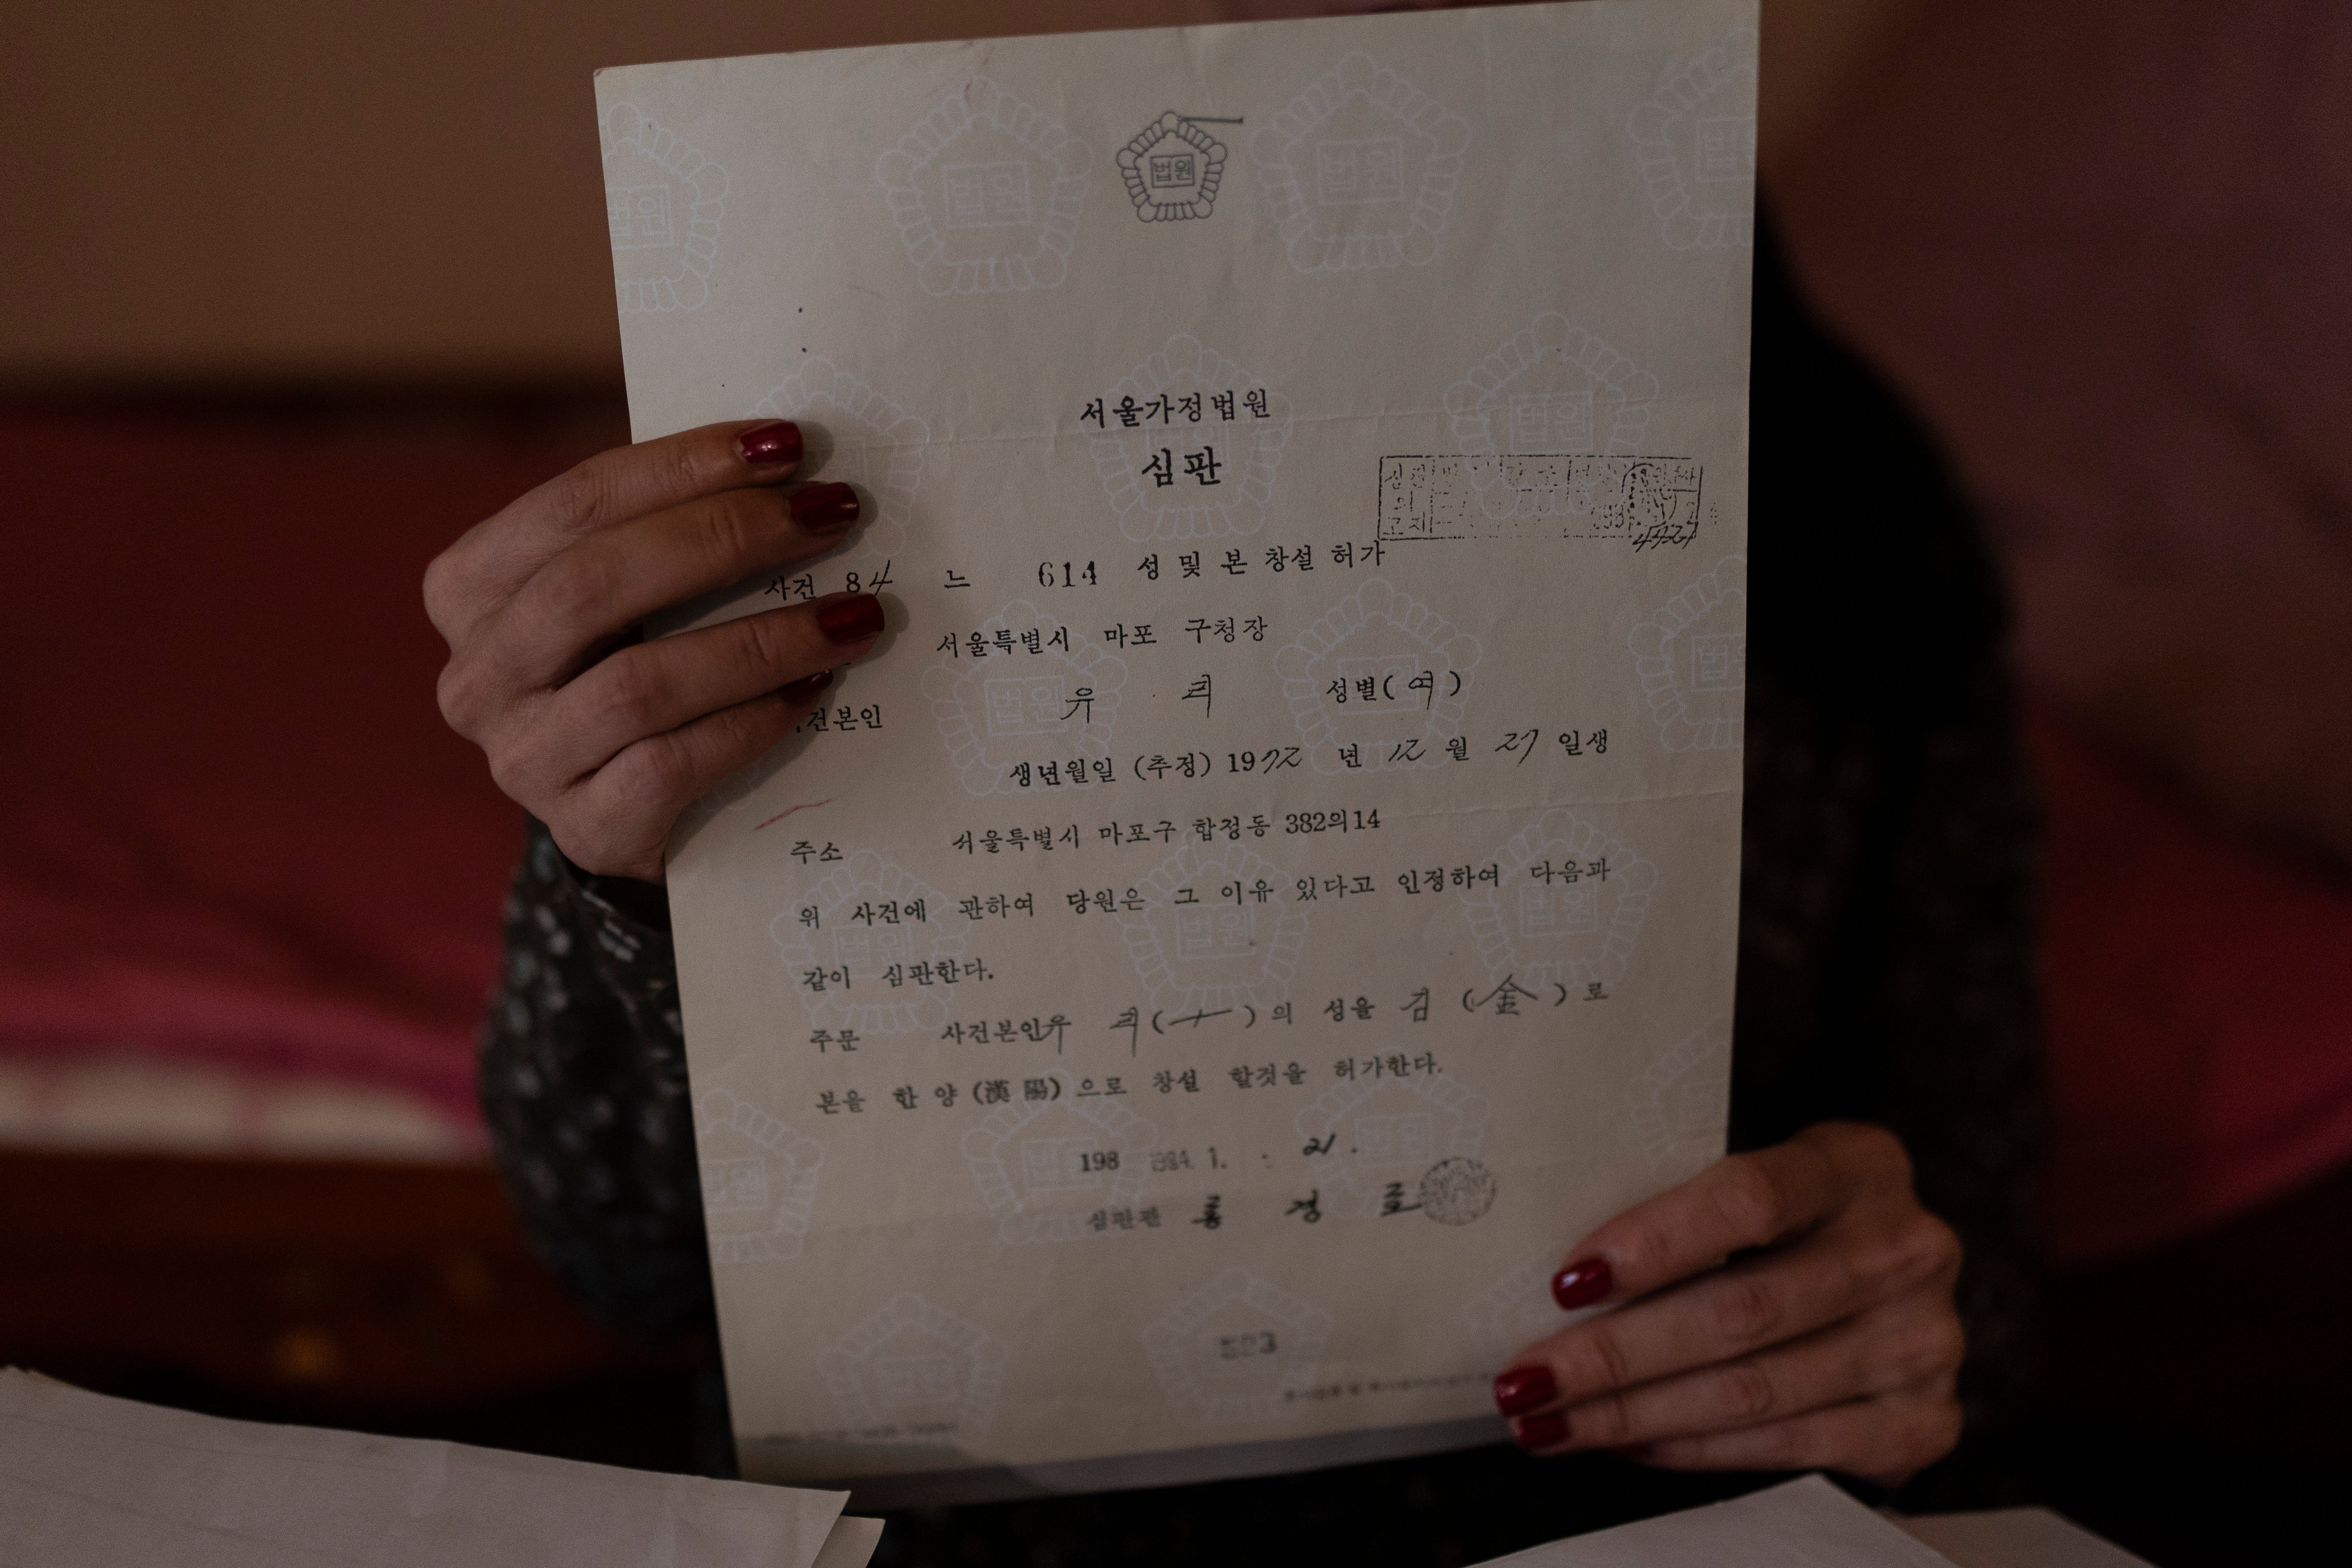 법원
서울가정법원
심판
사건 84 느 614 성 및 본 창설 허가
서울특별시 마포 구청장
건본인 유 리 성별(여)
생년월일 (추정) 1972 년 12 월 27 일생
주소 서울특별시 마포구 합정동 382의14
위 사건에 관하여 당원은 그 이유 있다고 인정하여 다음과
같이 심판한다.
주문 사건본인 유 리( )의 성을 김 (金)로
본을 한양(漢陽)으로 창설 할것을 허가한다.
198 1984. 1. 21.
심판관 경